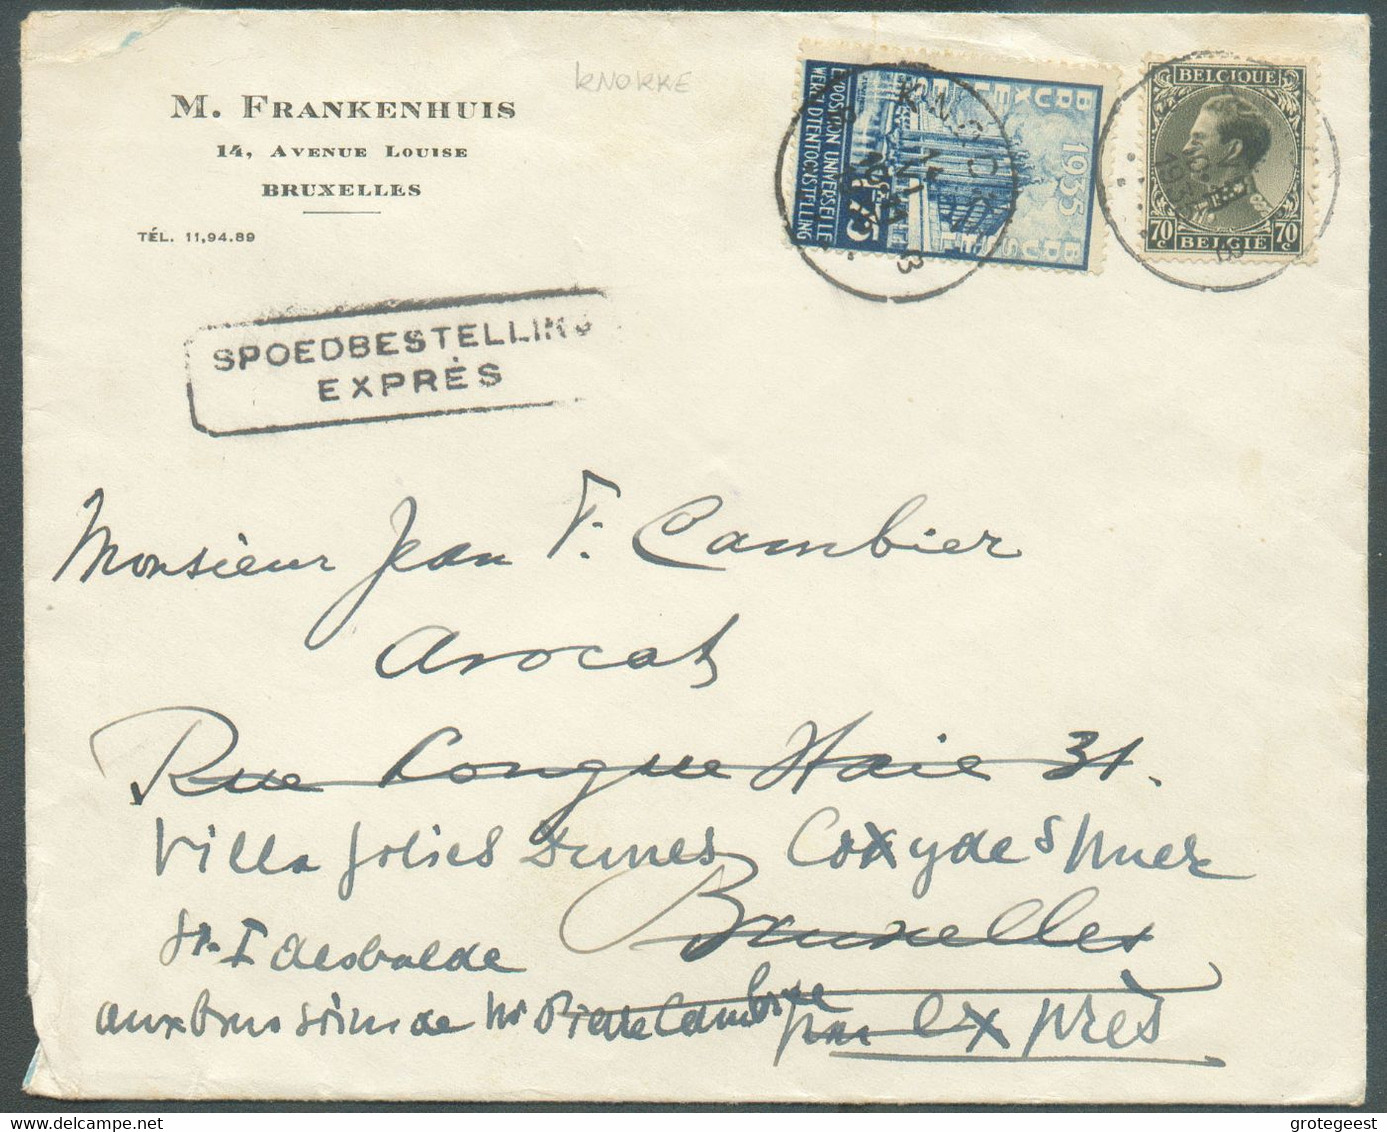 KNOKKE
M. FRANKENHUIS
14, AVENUE LOUISE
BRUXELLES
TÉL. 11,94.89
1935
BRUXELLES
BRUSSEL
EXPOSITION UNIVERSELLE
WERELDTENTOONSTELLING
BELGIQUE
70c 70c
BELGIË
SPOEDBESTELLING
EXPRÈS
Monsieur Jean F. Cambier
Avocat
Rue Longue Haie 31.
Villa Jolies Dunes Coxyde s/mer
St. Idesbalde
Bruxelles
aux bons soins de Mr Pierre Cambier
par exprès
grotegeest